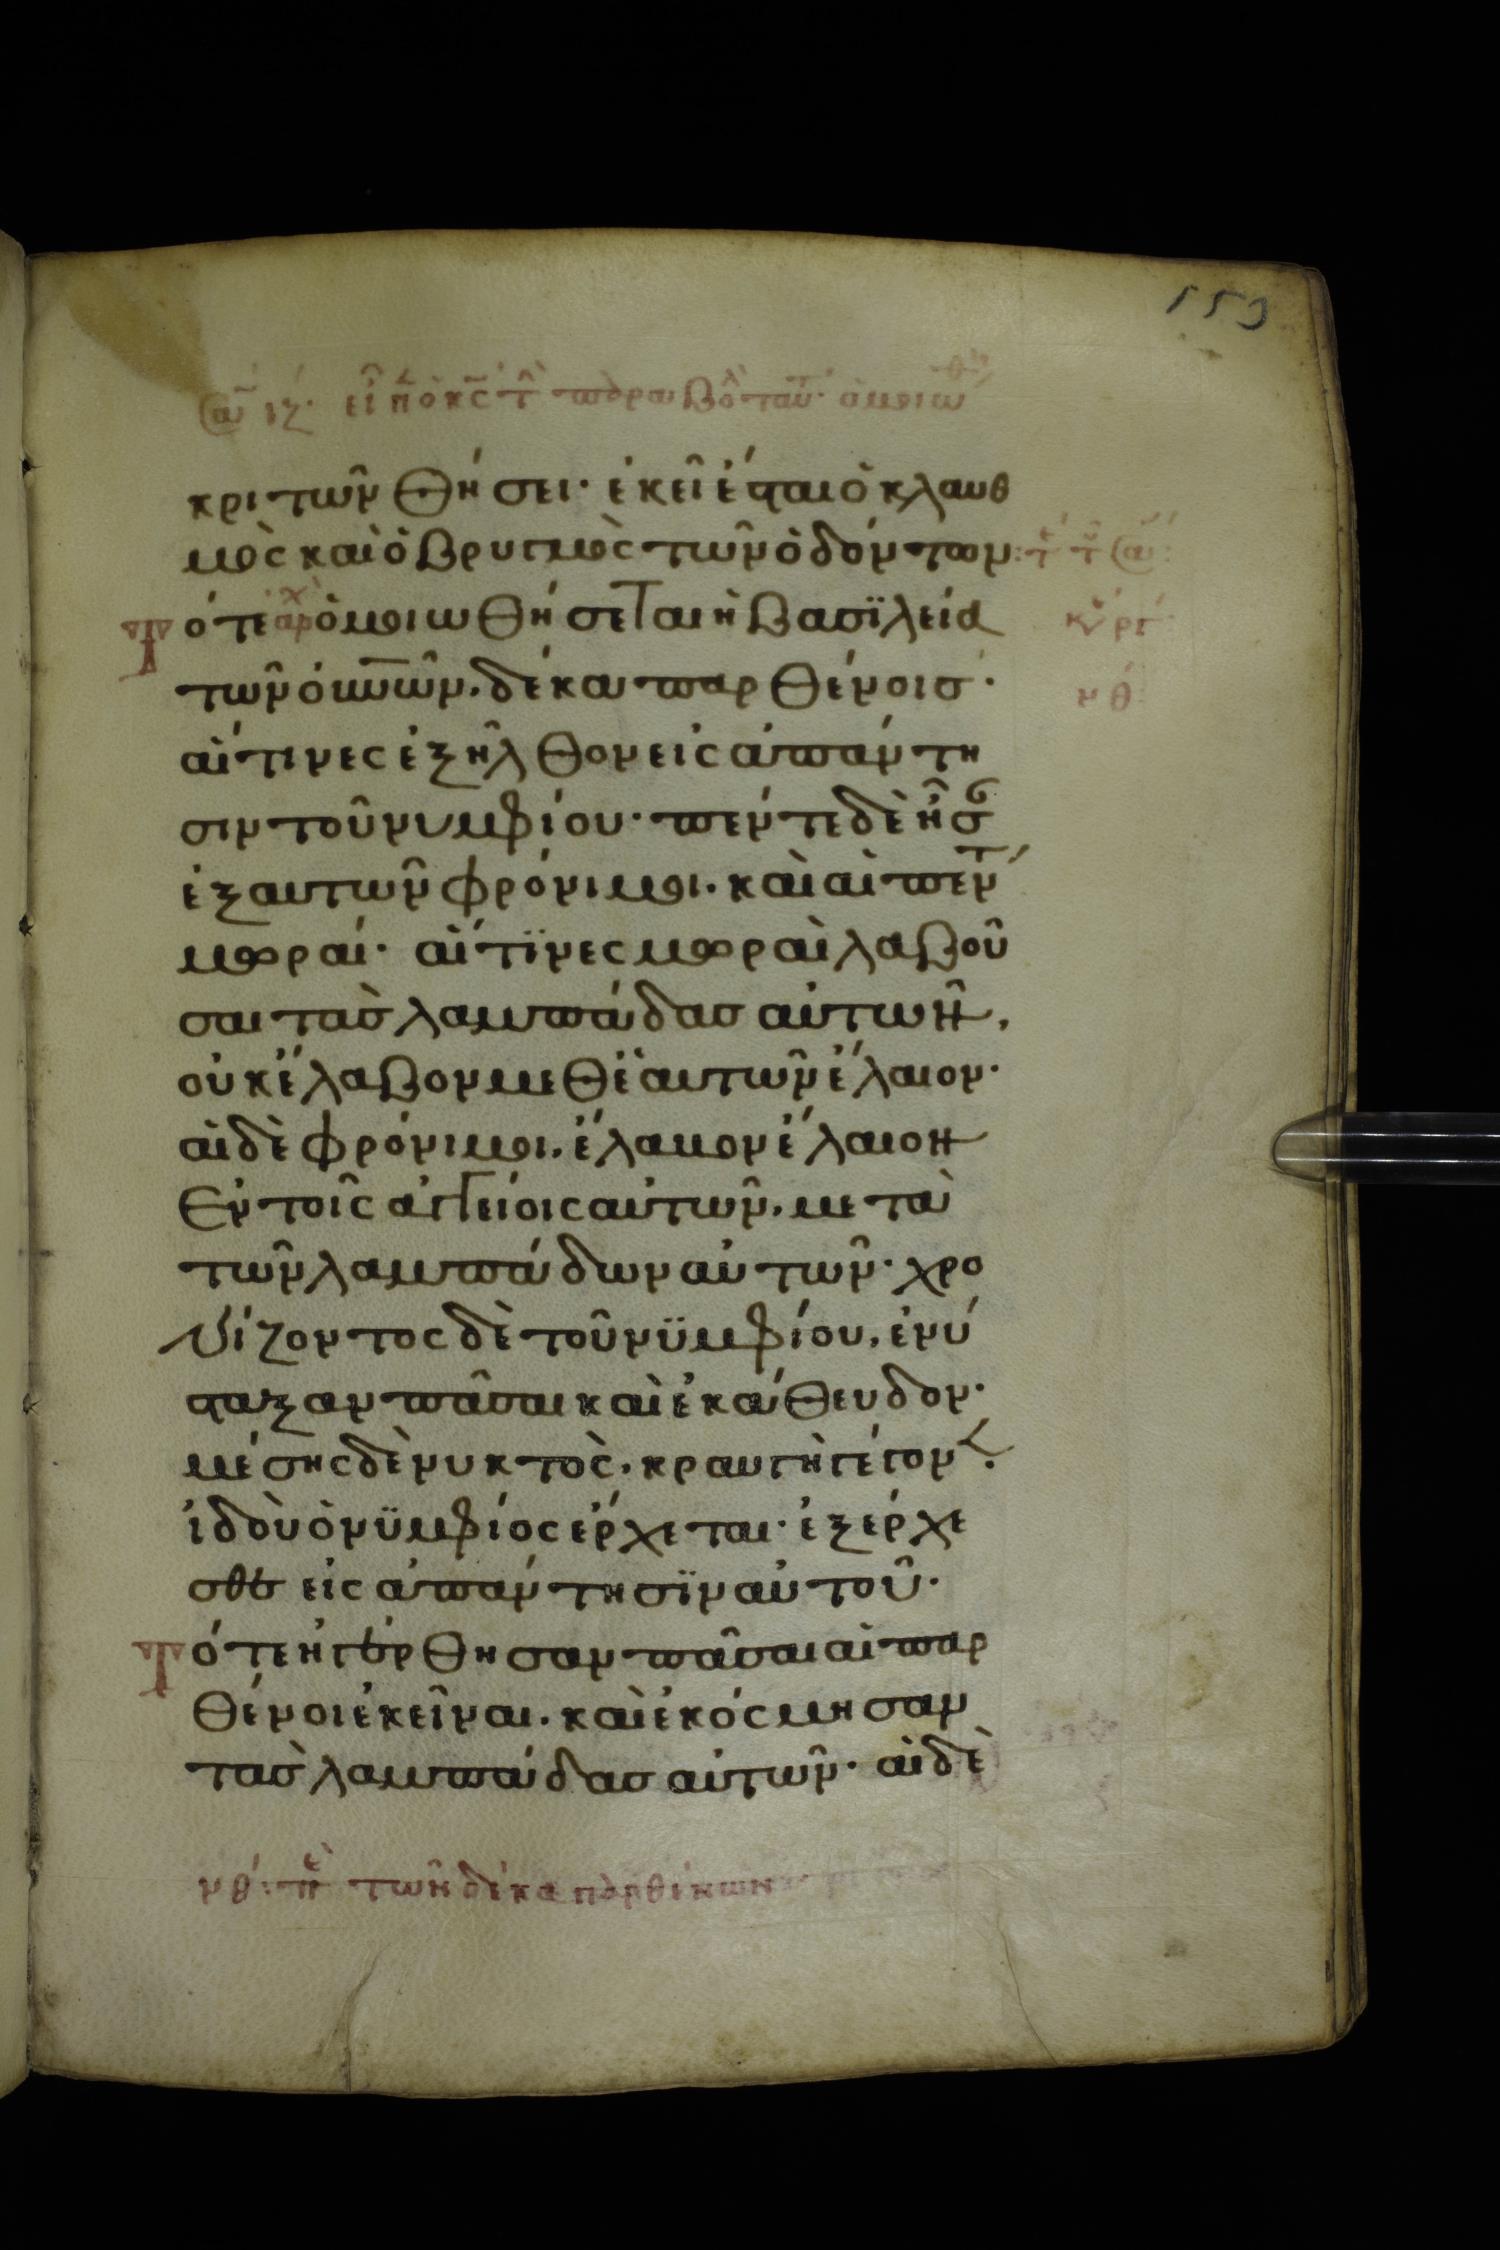 153
ιζ εἶπ ὁ κς τ παραβο ταυ ὁμοιω
κριτῶν θήσει· ἐκεῖ ἔσται ὁ κλαυθ
μὸς καὶ ὁ βρυγμὸς τῶν ὀδόντων:
Τότε ὁμοιωθήσεται ἡ βασϊλεία
τῶν οὐνῶν. δέκα παρθένοισ·
αἵτινες ἐξῆλθον εἰς ἀπάντη
σιν τοῦ νυμφίου· πέντε δὲ ἦσ
ἐξ αυτῶν φρόνιμοι. καὶ αἱ πέντ
μωραί· αἵτϊνες μωραὶ λαβοῦ
σαι τὰσ λαμπάδασ αὐτῶν,
οὐκ ἔλαβον μεθ ἑαυτῶν ἔλαιον·
αἱ δὲ φρόνιμοι, ἔλαμον ἔλαιον
Ἐν τοῖς ἀγγείοις αὐτῶν, μετὰ
τῶν λαμπάδων αὐτῶν· χρο
νίζοντος δὲ τοῦ νϋμφίου, ἐνύ
σταξαν πᾶσαι καὶ ἐκάθευδον·
μέσης δὲ νυκτὸς, κραυγὴ γέγον
ἰδοὺ ὁ νϋμφίος ἔρχεται· ἐξέρχε
σθε εἰς ἀπάντησϊν αὐτοῦ·
Τότε ἠγέρθησαν πᾶσαι αἱ παρ
θένοι ἐκεῖναι. καὶ ἐκόσμησαν
τὰσ λαμπάδασ αὐτῶν· αἱ δὲ
νθ: πε τῶν δέκα παρθένων
κυ ργ
νθ